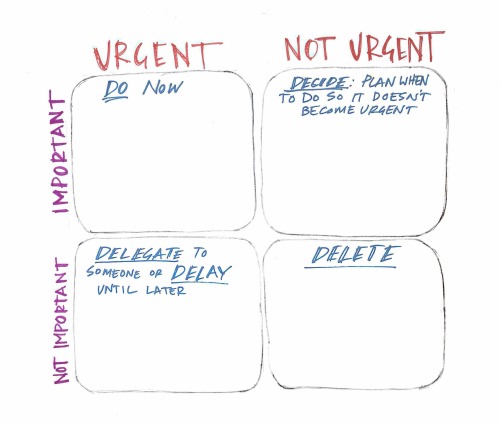 URGENT
NOT URGENT
IMPORTANT
DO NOW
DECIDE: PLAN WHEN
TO DO SO IT DOESN'T
BECOME URGENT
NOT IMPORTANT
DELEGATE TO
SOMEONE OR DELAY
UNTIL LATER
DELETE